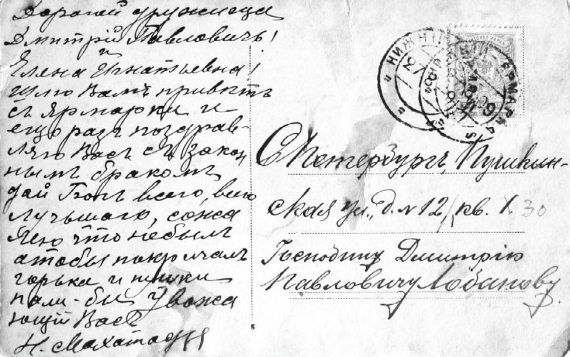 Дорогой дружище
Дмитрій Павловичъ!
и
Елена Игнатьевна!
шлю Вамъ приветъ
съ Ярмарки и
ещо разъ поздрав-
ляю Васъ съ закон-
нымъ бракомъ
дай Богъ всего, всего
лучьшаго, сожа
лею что небылъ
а тобы покричалъ
горько и
пали-бы Уважа
ющій Васъ
Н.
С Петербургъ, Пушкин-
ская ул., д. № 12, кв. 1. 30
Господину Дмитрію
Павловичу Лобанову.
НИЖН ЯРМАРКА